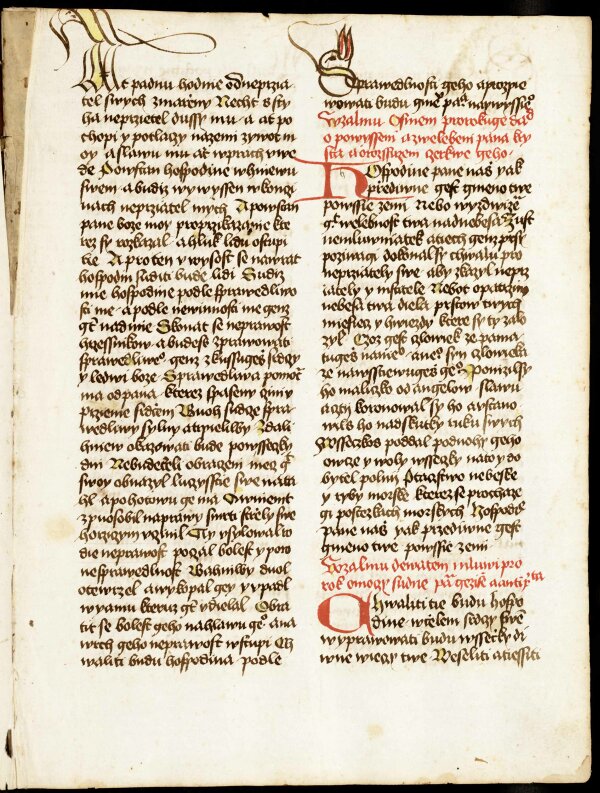 Ať padnu hodnie od neprzia
tel swych zmarieny Necht sſty
ha neprzietel duſſy mu a at po
chopi y potlaczy nazemi zywot m
oy a slawu mu at wprach vwe
de Powſtan hoſpodine whniewu
swem a budiz wywyſſen wkonczi
nach neprziatel mych A powſtan
pane boze moy wprzikazanie kte
rez sy rozkazal a hluk lidu oſtupi
tie A pro ten y wyſoſt se nawrat
hoſpodin suditi bude lidi Sudiz
mie hoſpodine podle ſprawedlwo
ſti me a podle newinnoſti me genz
geſt nademnie Skonat se neprawoſt
hrzieſſnikow a budeſs zprawowati
ſprawedliweho genz zkuſſugeſs ſrdczy
y ledwi boze Sprawedliwa pomocz
ma od pana kterez ſpaſeny czini
przieme ſrdcem Buoh ſudcze ſpra
wedliwy sylny a trpieliwy Zdali
hniew okazowati bude po wſſeczky
dni Nebudeteli obraczeni mecz
swoy obnazyl luczyſſcie swe nata
hl a pohotowu ge ma A w niem
zpuoſobil naprawy smrti strzely swe
horziczym vczinil Ay vſylowal to
die neprawoſt poczal boleſt y poro
neſprawedlnoſt Wahniwy duol
otewrzel a wykopal gey y vpadl
w yamu kteruz geſt vdielal Obra
tit se boleſt geho na hlawu geho a na
wrch geho neprawoſt wſtupi Ch
waliti budu hoſpodina podle
Sprawedlnoſti geho a prozpie
wowati budu gmenu pana naywyſſieho
W zalmu Oſmem prorokuge dawid
o powyſſeni a zwelebeni pana kry
ſta a o rozſſirzeni czerkwe geho
Hoſpodine pane nas yak
przediwne geſt gmeno twe
po wſſie zemi Nebo wyzdwize
geſt welebnoſt twa nad nebeſa Z uſt
nemluwniatek a tiech genz prſy
pozywagi dokonal sy chwalu pro
neprzately swe aby zkazyl neprz
iately y mſtitele Nebot opatrzim
nebeſa twa diela prſtow twych
mieſiecz y hwiezdy ktere sy ty zalo
zyl Czoz geſt czlowiek ze pama
tugeſs nan anebo syn czlowieka
ze nawſſtiewugeſs geho Ponizil sy
ho maliczko od angelow slawu
a czti koronowal sy ho a vſtano
wils ho nad skutky ruku swych
Wſſeczko s poddal pod nohy geho
owcze y woly wſſeczky na to y do
bytek polni Ptacſtwo nebeſke
y ryby morſke kterez se prochaze
gi po ſtezkach morſkych Hoſpodine
pane nas yak przediwne geſt
gmeno twe po wſſie zemi
W zalmu dewatem mluwi pro
rok o moczy sudne pana gezisse a antikryſta
Chwaliti tie budu hoſpo
dine w czelem ſrdczy swem
wyprawowati budu wſſeczky di
wne wieczy twe Weſeliti a tieſſiti